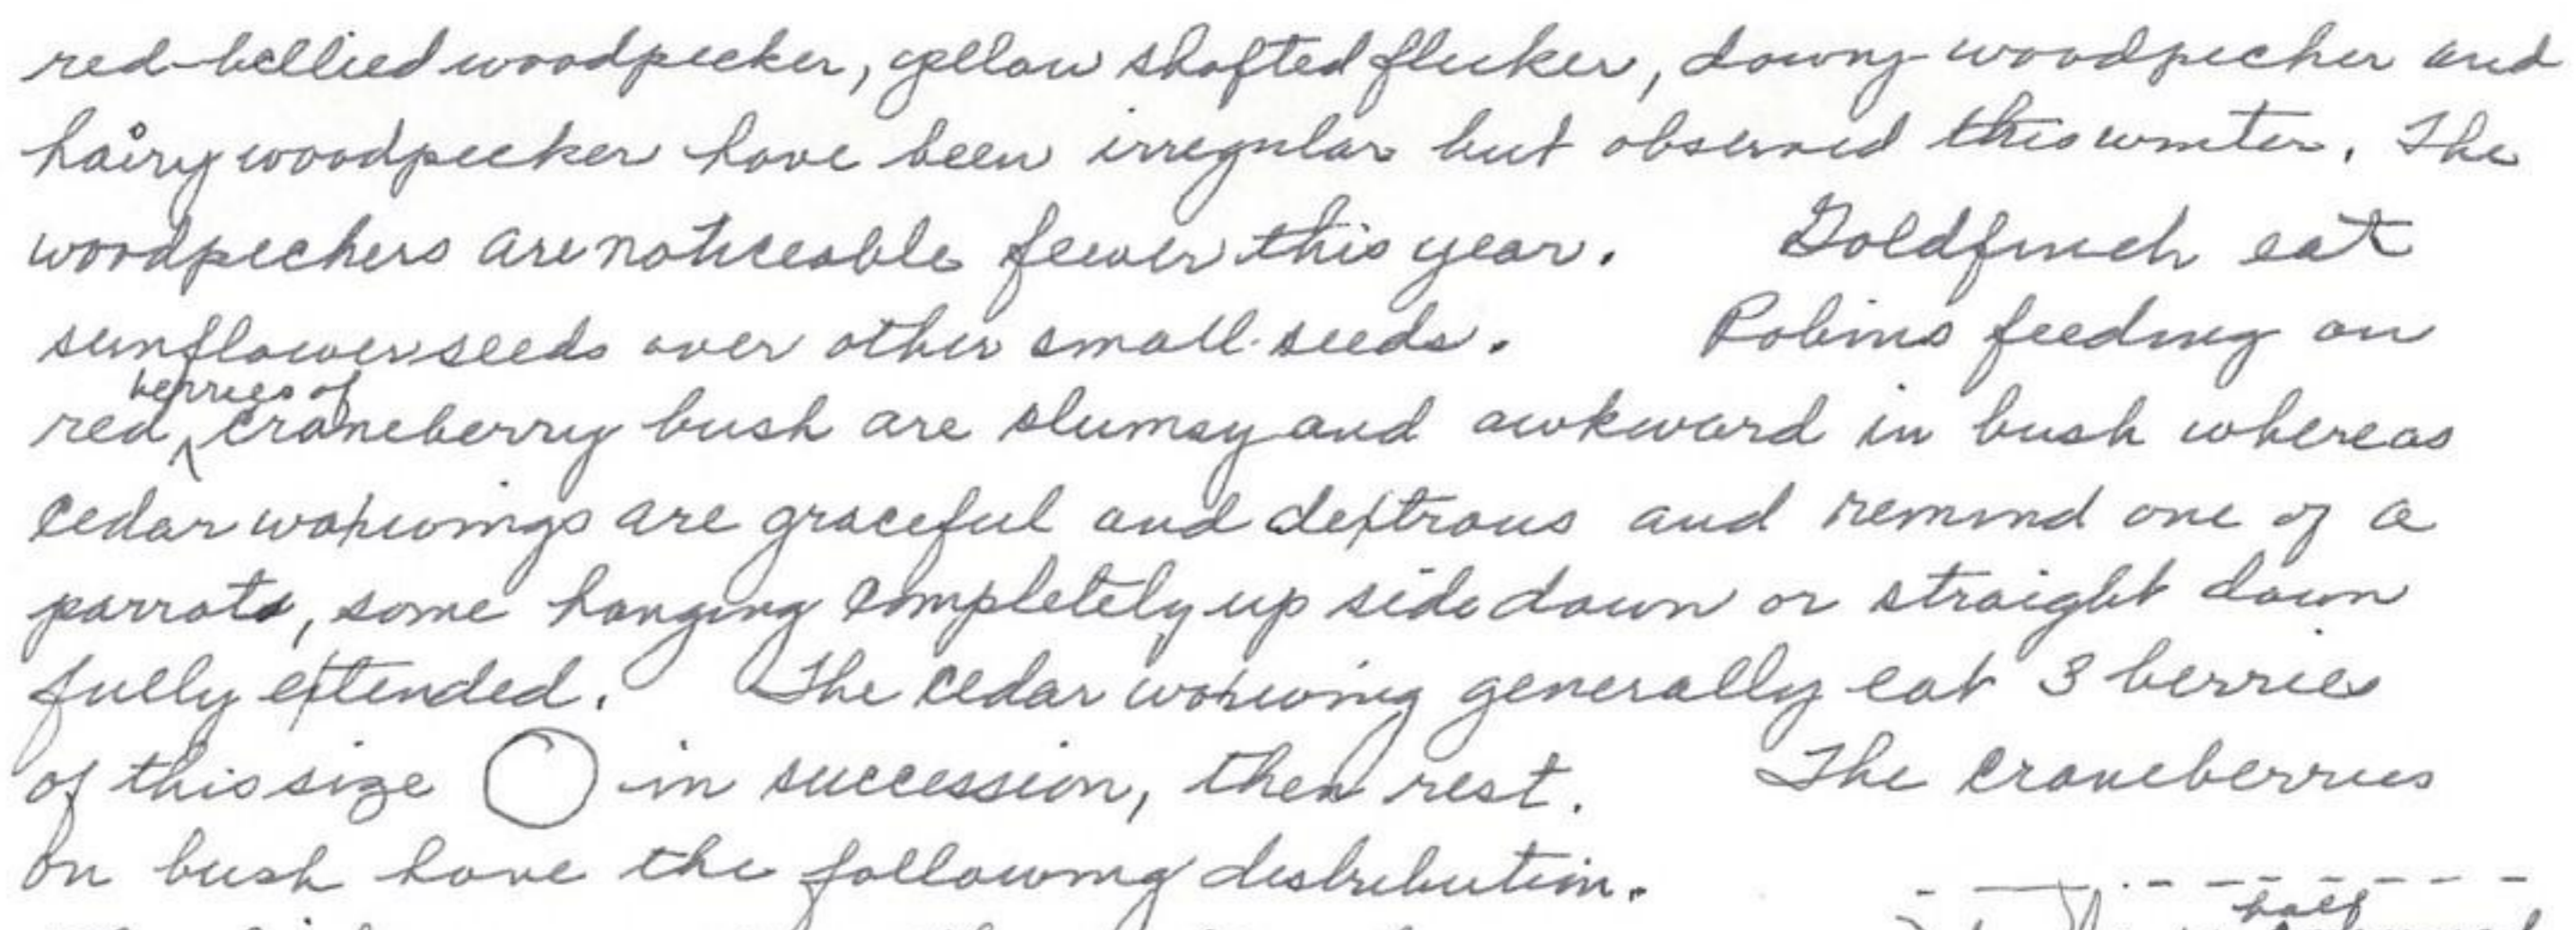 red-bellied woodpecker, yellow shafted flicker, downy woodpecker and
hairy woodpecker have been irregular but observed this winter. The
woodpeckers are noticeable fewer this year. Goldfinch eat
sunflower seeds over other small seeds. Robins feeding on
berries of
red craneberry bush are slumsy and awkward in bush whereas
cedar waxwings are graceful and dextrous and remind one of a
parrots, some hanging completely up side down or straight down
fully extended. The cedar waxwing generally eat 3 berries
of this size in succession, then rest. The craneberries
on bush have the following distribution.
half